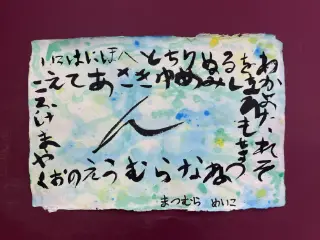 いろはにほへとちりぬるを
わかよたれそ
つねならむうゐのおく
やまけふこ
えてあさきゆめみし
ゑひもせす
ん
まつむら めいこ